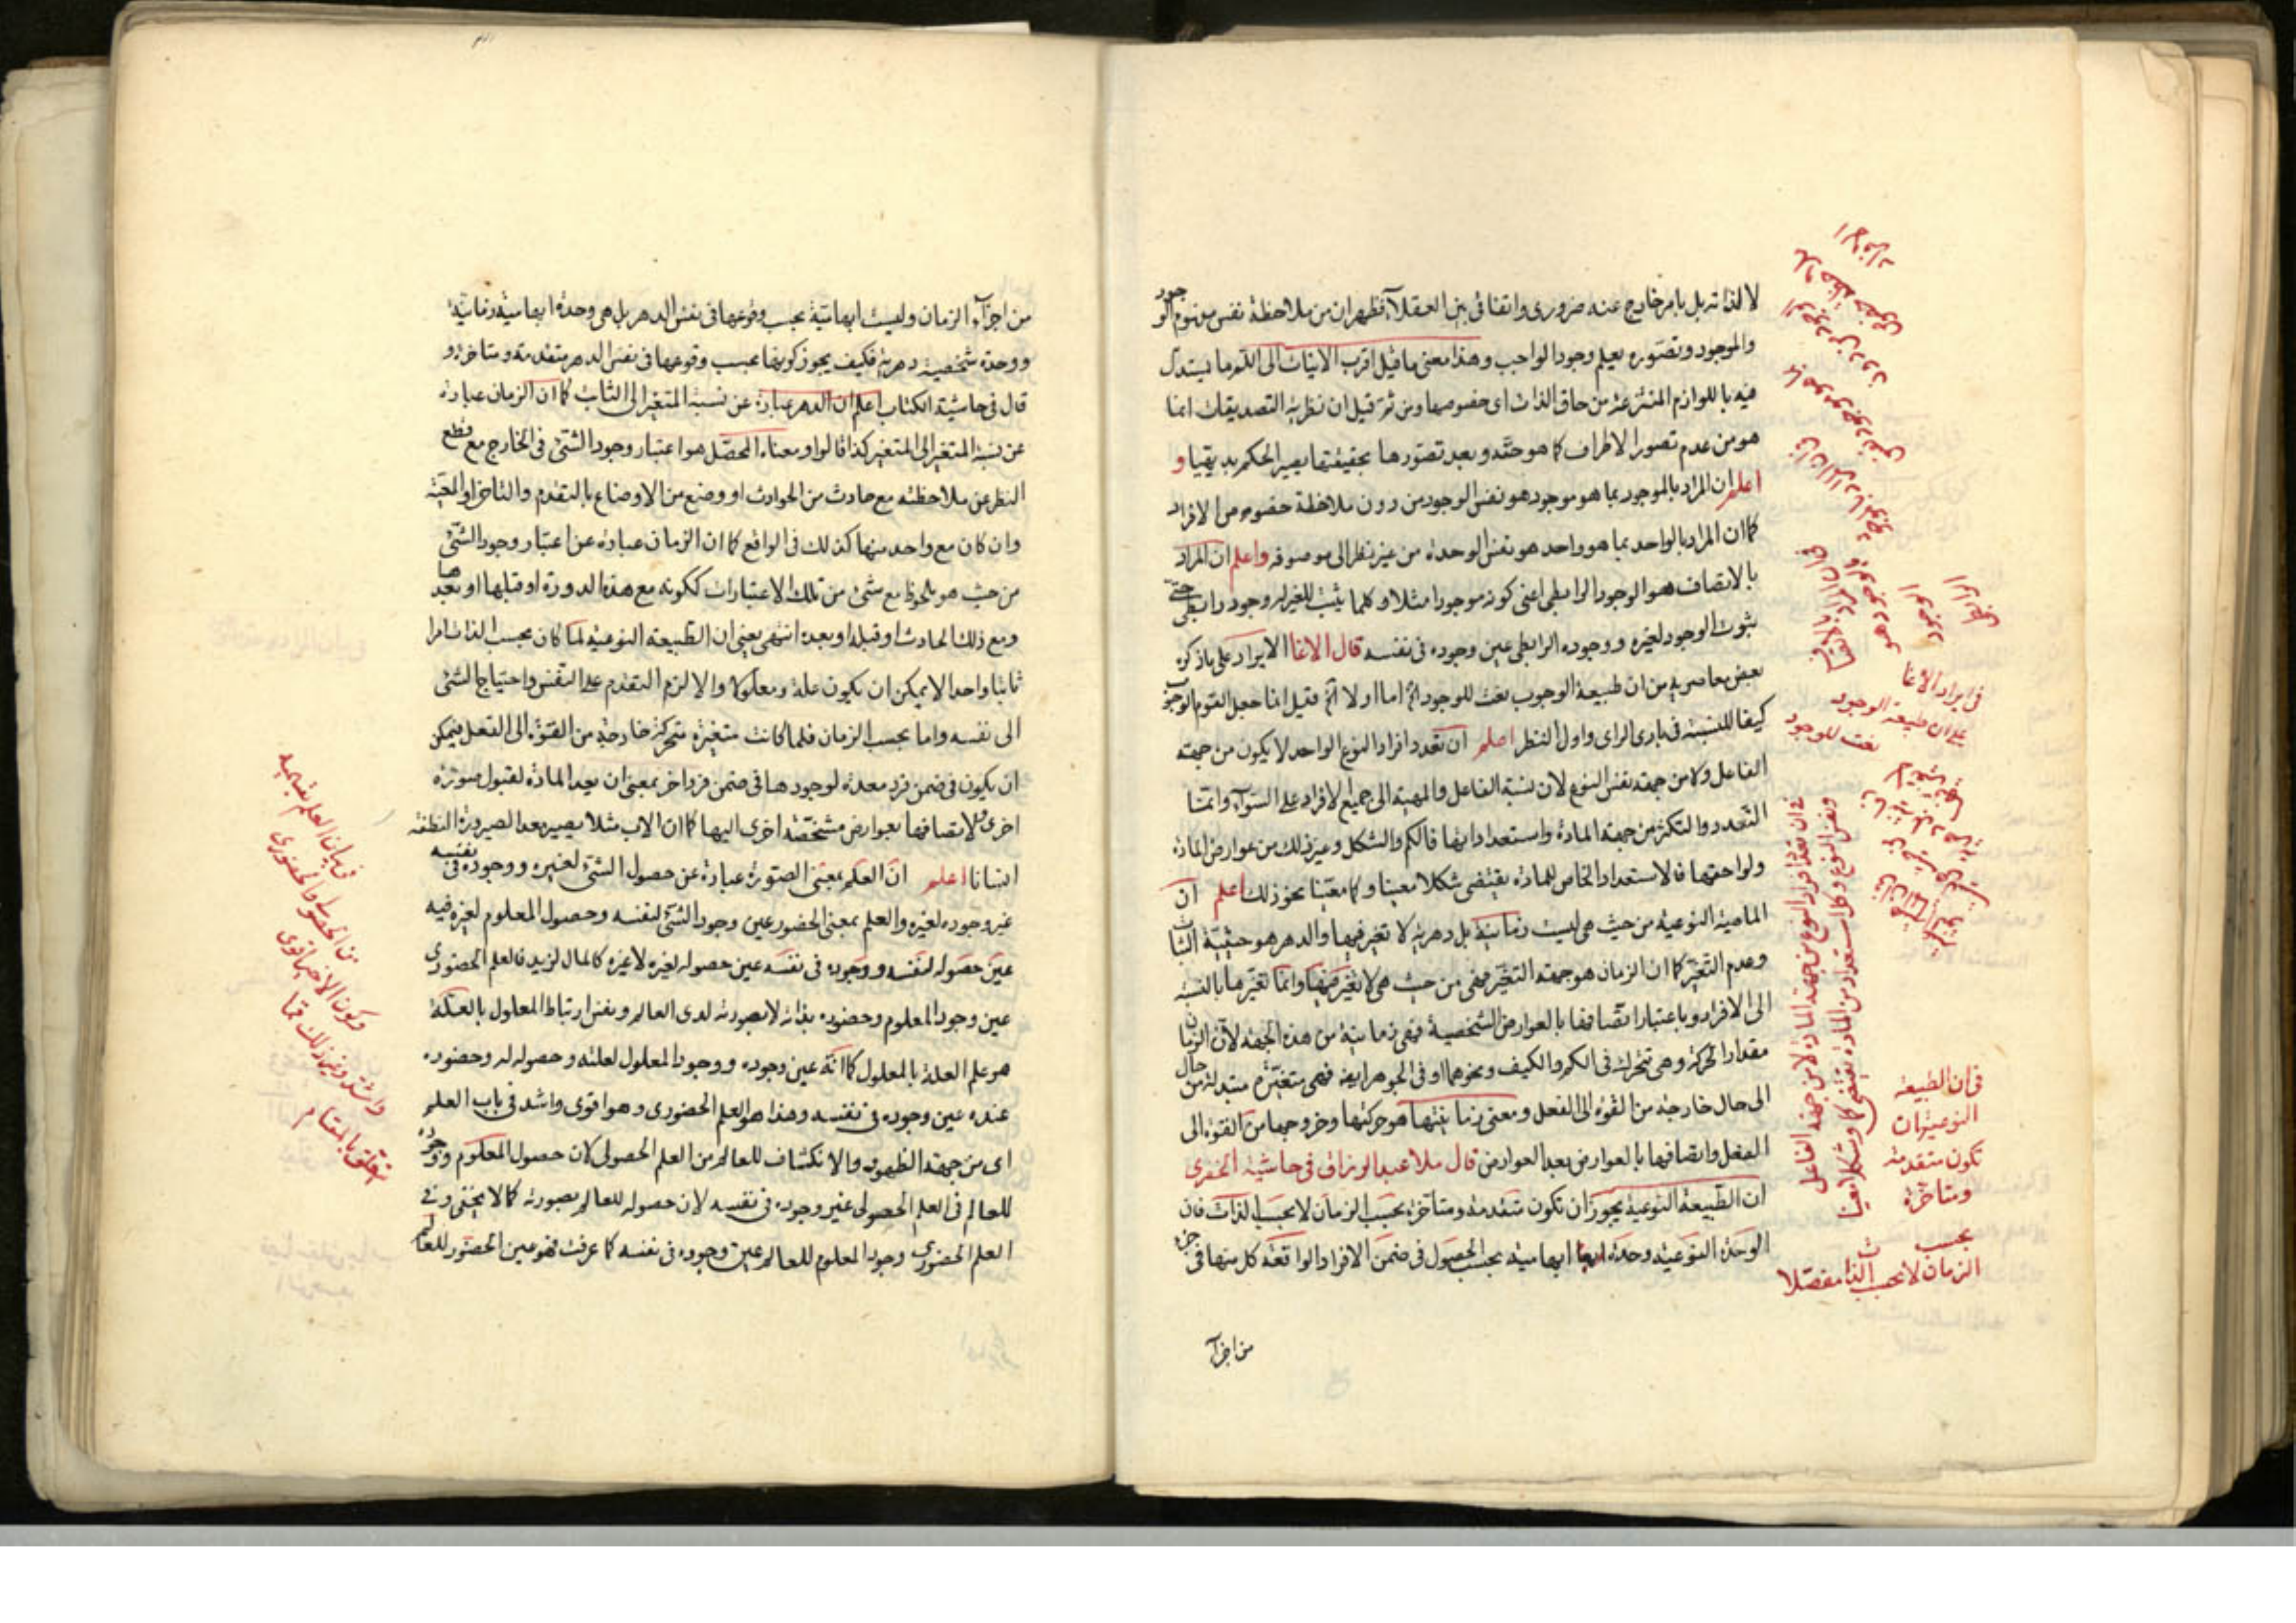 لا لذاته بل بامر خارج عنه ضرورى واتفاقى بين العقلآء فظهر ان من ملاحظة نفس مفهوم الوجود
والموجود وتصوره يعلم وجود الواجب وهذا معنى ما قيل اقرب الاثبات الى اللم ما يستدل
فيه باللوازم المنتزعة من حاق الذات اى خصوصها ومن ثم قيل ان نظرية التصديقات انما
هو من عدم تصور الاطراف كما هو حقه وبعد تصورها بحقيقتها يصير الحكم بديهيا و
اعلم ان المراد بالموجود بما هو موجود هو نفس الوجود من دون ملاحظة خصوص من الافراد
كما ان المراد بالواحد بما هو واحد هو نفس الوحدة من غير نظر الى موصوفه واعلم ان المراد
بالاتصاف هو الوجود الرابطى اعنى كونه موجودا مثلا وكلما يثبت للغير له وجود رابطى حتى
ثبوت الوجود لغيره ووجوده الرابطى عين وجوده فى نفسه قال الاغا الايراد على ما ذكره
بعض معاصريه من ان طبيعة الوجوب نعت للوجود اما اولا فلم قيل انما جعل القوم الوجوب
كيفا للنسبة فى بادى الراى واول النظر اعلم ان تعدد افراد النوع الواحد لا يكون من جهة
الفاعل ولا من جهة نفس النوع لان نسبة الفاعل والمهية الى جميع الافراد على السوآء وانما
التعدد والتكثر من جهة المادة واستعداداتها فالكم والشكل وغير ذلك من عوارض المادة
ولواحقها فالاستعداد الخاص للمادة يقتضى شكلا معينا وكما معينا نحو ذلك اعلم ان
الماهية النوعية من حيث هى ليست زمانية بل دهرية لا تغير فيها والدهر هو حيثية الثبات
وعدم التغير كما ان الزمان هو جهة التغير فهى من حيث هى لا تغير فيها وانما تغيرها بالنسبة
الى الافراد وباعتبار اتصافها بالعوارض الشخصية فهى زمانية من هذه الجهة لان الزمان
مقدار الحركة وهى تتحرك فى الكم والكيف ونحوهما او فى الجوهر ايضا فهى متغيرة متبدلة من حال
الى حال خارجة من القوة الى الفعل ومعنى زمانيتها هو حركتها وخروجها من القوة الى
الفعل واتصافها بالعوارض بعد العوارض قال ملا عبد الرزاق فى حاشية الخفرى
ان الطبيعة النوعية يجوز ان تكون متقدمة ومتاخرة بحسب الزمان لا بحسب الذات فان
الوحدة النوعية وحدة ابهامية بحسب الحصول فى ضمن الافراد الواقعة كل منها فى جزء
من اجزآء
فى ايراد الاغا
على ان طبيعة الوجود
نعت للوجود
فى ان تعدد افراد النوع من جهة المادة لا من جهة الفاعل
ونفس النوع وكل استعداد من المادة يقتضى كما وشكلا معينا
فى ان الطبيعة
النوعية ان
تكون متقدمة
ومتاخرة
بحسب
الزمان لا بحسب الذات مفصلا
من اجزآء الزمان وليست ابهامية بحسب وقوعها فى نفس الدهر بل هى وحدة ابهامية زمانية
ووحدة شخصية دهرية فكيف يجوز كونها بحسب وقوعها فى نفس الدهر متقدمة ومتاخرة و
قال فى حاشية الكتاب اعلم ان الدهر عبارة عن نسبة المتغير الى الثابت كما ان الزمان عبارة
عن نسبة المتغير الى المتغير كذا قالوا ومعناه المحصل هو اعتبار وجود الشئ فى الخارج مع قطع
النظر عن ملاحظته مع حادث من الحوادث او وضع من الاوضاع بالتقدم والتاخر او المعية
وان كان مع واحد منها كذلك فى الواقع كما ان الزمان عبارة عن اعتبار وجود الشئ
من حيث هو ملحوظ مع شئ من تلك الاعتبارات ككونه مع هذه الدورة او قبلها او بعدها
ومع ذلك الحادث او قبله او بعده انتهى يعنى ان الطبيعة النوعية لما كان بحسب الذات امرا
ثابتا واحدا لا يمكن ان يكون علة ومعلولا والا لزم التقدم على النفس واحتياج الشئ
الى نفسه واما بحسب الزمان فلما كانت متغيرة متحركة خارجة من القوة الى الفعل فيمكن
ان يكون فى ضمن فرد معدة لوجودها فى ضمن فرد اخر بمعنى ان يعد المادة لقبول صورة
اخرى لاتصافها بعوارض مشخصة اخرى اليها كما ان الاب مثلا يصير معدا لصيرورة النطفة
انسانا اعلم ان العلم بمعنى الصورة عبارة عن حصول الشئ لغيره ووجوده فى نفسه
غير وجوده لغيره والعلم بمعنى الحضور عين وجود الشئ لنفسه وحصول المعلوم لغيره فيه
عين حصوله لنفسه ووجوده فى نفسه عين حصوله لغيره لا غيره كالمال لزيد فالعلم الحضورى
عين وجود المعلوم وحضوره بذاته لا بصورته لدى العالم ونفس ارتباط المعلول بالعلة
هو علم العلة بالمعلول كما انه عين وجوده ووجود المعلول لعلته وحصوله له وحضوره
عنده عين وجوده فى نفسه وهذا هو العلم الحضورى وهو اقوى واشد فى باب العلم
اى من جهة الظهور والانكشاف للعالم من العلم الحصولى لان حصول المعلوم ووجوده
للعالم فى العلم الحصولى غير وجوده فى نفسه لان حصوله للعالم بصورته كما لا يخفى وفى
العلم الحضورى وجود المعلوم للعالم عين وجوده فى نفسه كما عرفت فهو عين الحضور للعالم
فى بيان العلم بقسميه
من الحصولى والحضورى
وكون الاخير اقوى
واشد وغير ذلك مما
يتعلق بالمقام